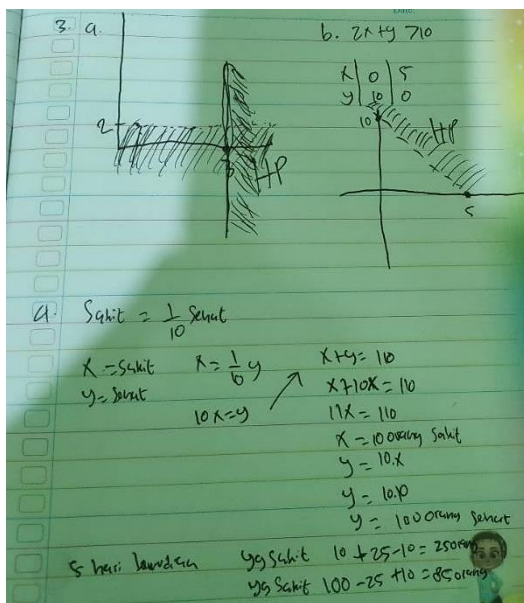 3. a.
2
3
HP
b. 2x+y >10
x | 0 | 5
y | 10 | 0
10
HP
5
a. Sakit = 1/10 Sehat
x = Sakit
y = Sehat
x = 1/10 y
10x=y
x+y= 110
x+10x = 110
11x = 110
x = 10 orang Sakit
y = 10.x
y = 10.10
y = 100 orang Sehat
5 hari kemudian
yg Sakit 10 + 25 - 10 = 25 orang
yg Sakit 100 - 25 + 10 = 85 orang